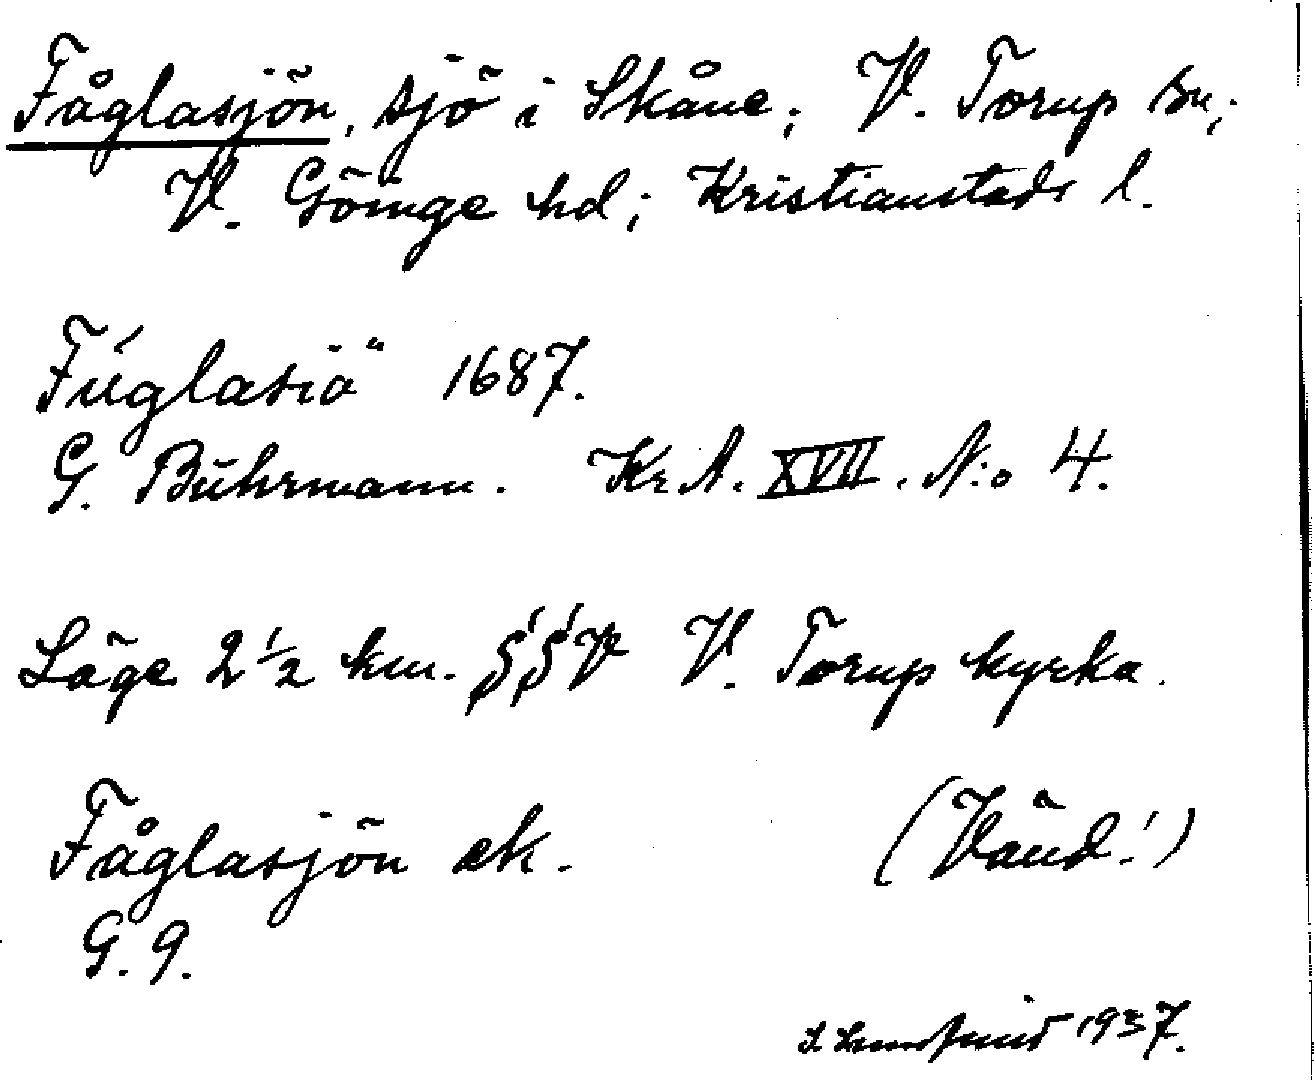 Fåglasjön, sjö i Skåne; V. Torup sn;
V. Göinge hd; Kristianstads l.
Fúglasiö 1687.
G. Buhrmann. Kr.A. XVII. N:o 4.
Läge 2 1/2 km. V. Torup kyrka.
Fåglasjön ek. (Vänd!)
G. 9.
1937.